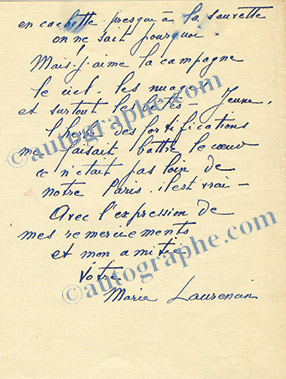 en cachette presqu'à la sauvette
on ne sait pourquoi.
Mais j'aime la campagne
le ciel. les nuages
et surtout les bêtes - Jeune,
l'herbe des fortifications
me faisait battre le cœur
ce n'était pas loin de
notre Paris. il est vrai -
Avec l'expression de
mes remerciements
et mon amitié
Votre
Marie Laurencin
©autographe.com
©autographe.com